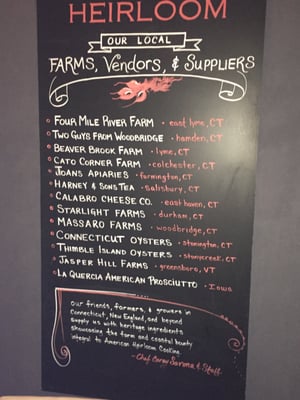 HEIRLOOM
OUR LOCAL
FARMS, Vendors, & SUPPLIERS
FOUR MILE RIVER FARM • east lyme, CT
TWO GUYS FROM WOODBRIDGE • hamden, CT
BEAVER BROOK FARM • lyme, CT
CATO CORNER FARM • colchester, CT
JOANS APIARIES • farmington, CT
HARNEY & SONS TEA • Salisbury, CT
CALABRO CHEESE CO. • east haven, CT
STARLIGHT FARMS • durham, CT
MASSARO FARMS • woodbridge, CT
CONNECTICUT OYSTERS • stonington, CT
THIMBLE ISLAND OYSTERS • stonycreek, CT
JASPER HILL FARMS • greensboro, VT
LA QUERCIA AMERICAN PROSCIUTTO • Iowa
Our friends, farmers, & growers in
Connecticut, New England, and beyond
supply us with heritage ingredients
showcasing the farm and coastal bounty
integral to American Heirloom Cooking.
- Chef Carey Savona & Staff